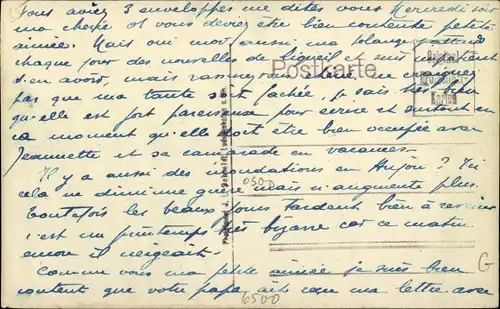 Vous aviez 3 enveloppes me dites vous Mercredi soir
ma chere et vous deviez être bien contente petite
aimée. Mais oui moi aussi, ma
chaque jour des nouvelles de suis impatient
d'en avoir, mais
pas que ma tante soit fachée, je sais très bien
qu'elle est fort paresseuse pour écrire et surtout en
ce moment qu'elle doit etre bien occupée avec
Jeannette et sa camarade en vacances.
Il y a aussi des inondations en Anjou? Ici
cela ne diminue guère mais n'augmente plus.
Toutefois les beaux jours tardent bien à revenir
c'est un printemps très bizarre car ce matin
encore il neigeait.
Comme vous ma petite aimée je suis bien
content que votre papa ait reçu ma lettre avec
Postkarte
Original
Karten
6500
G